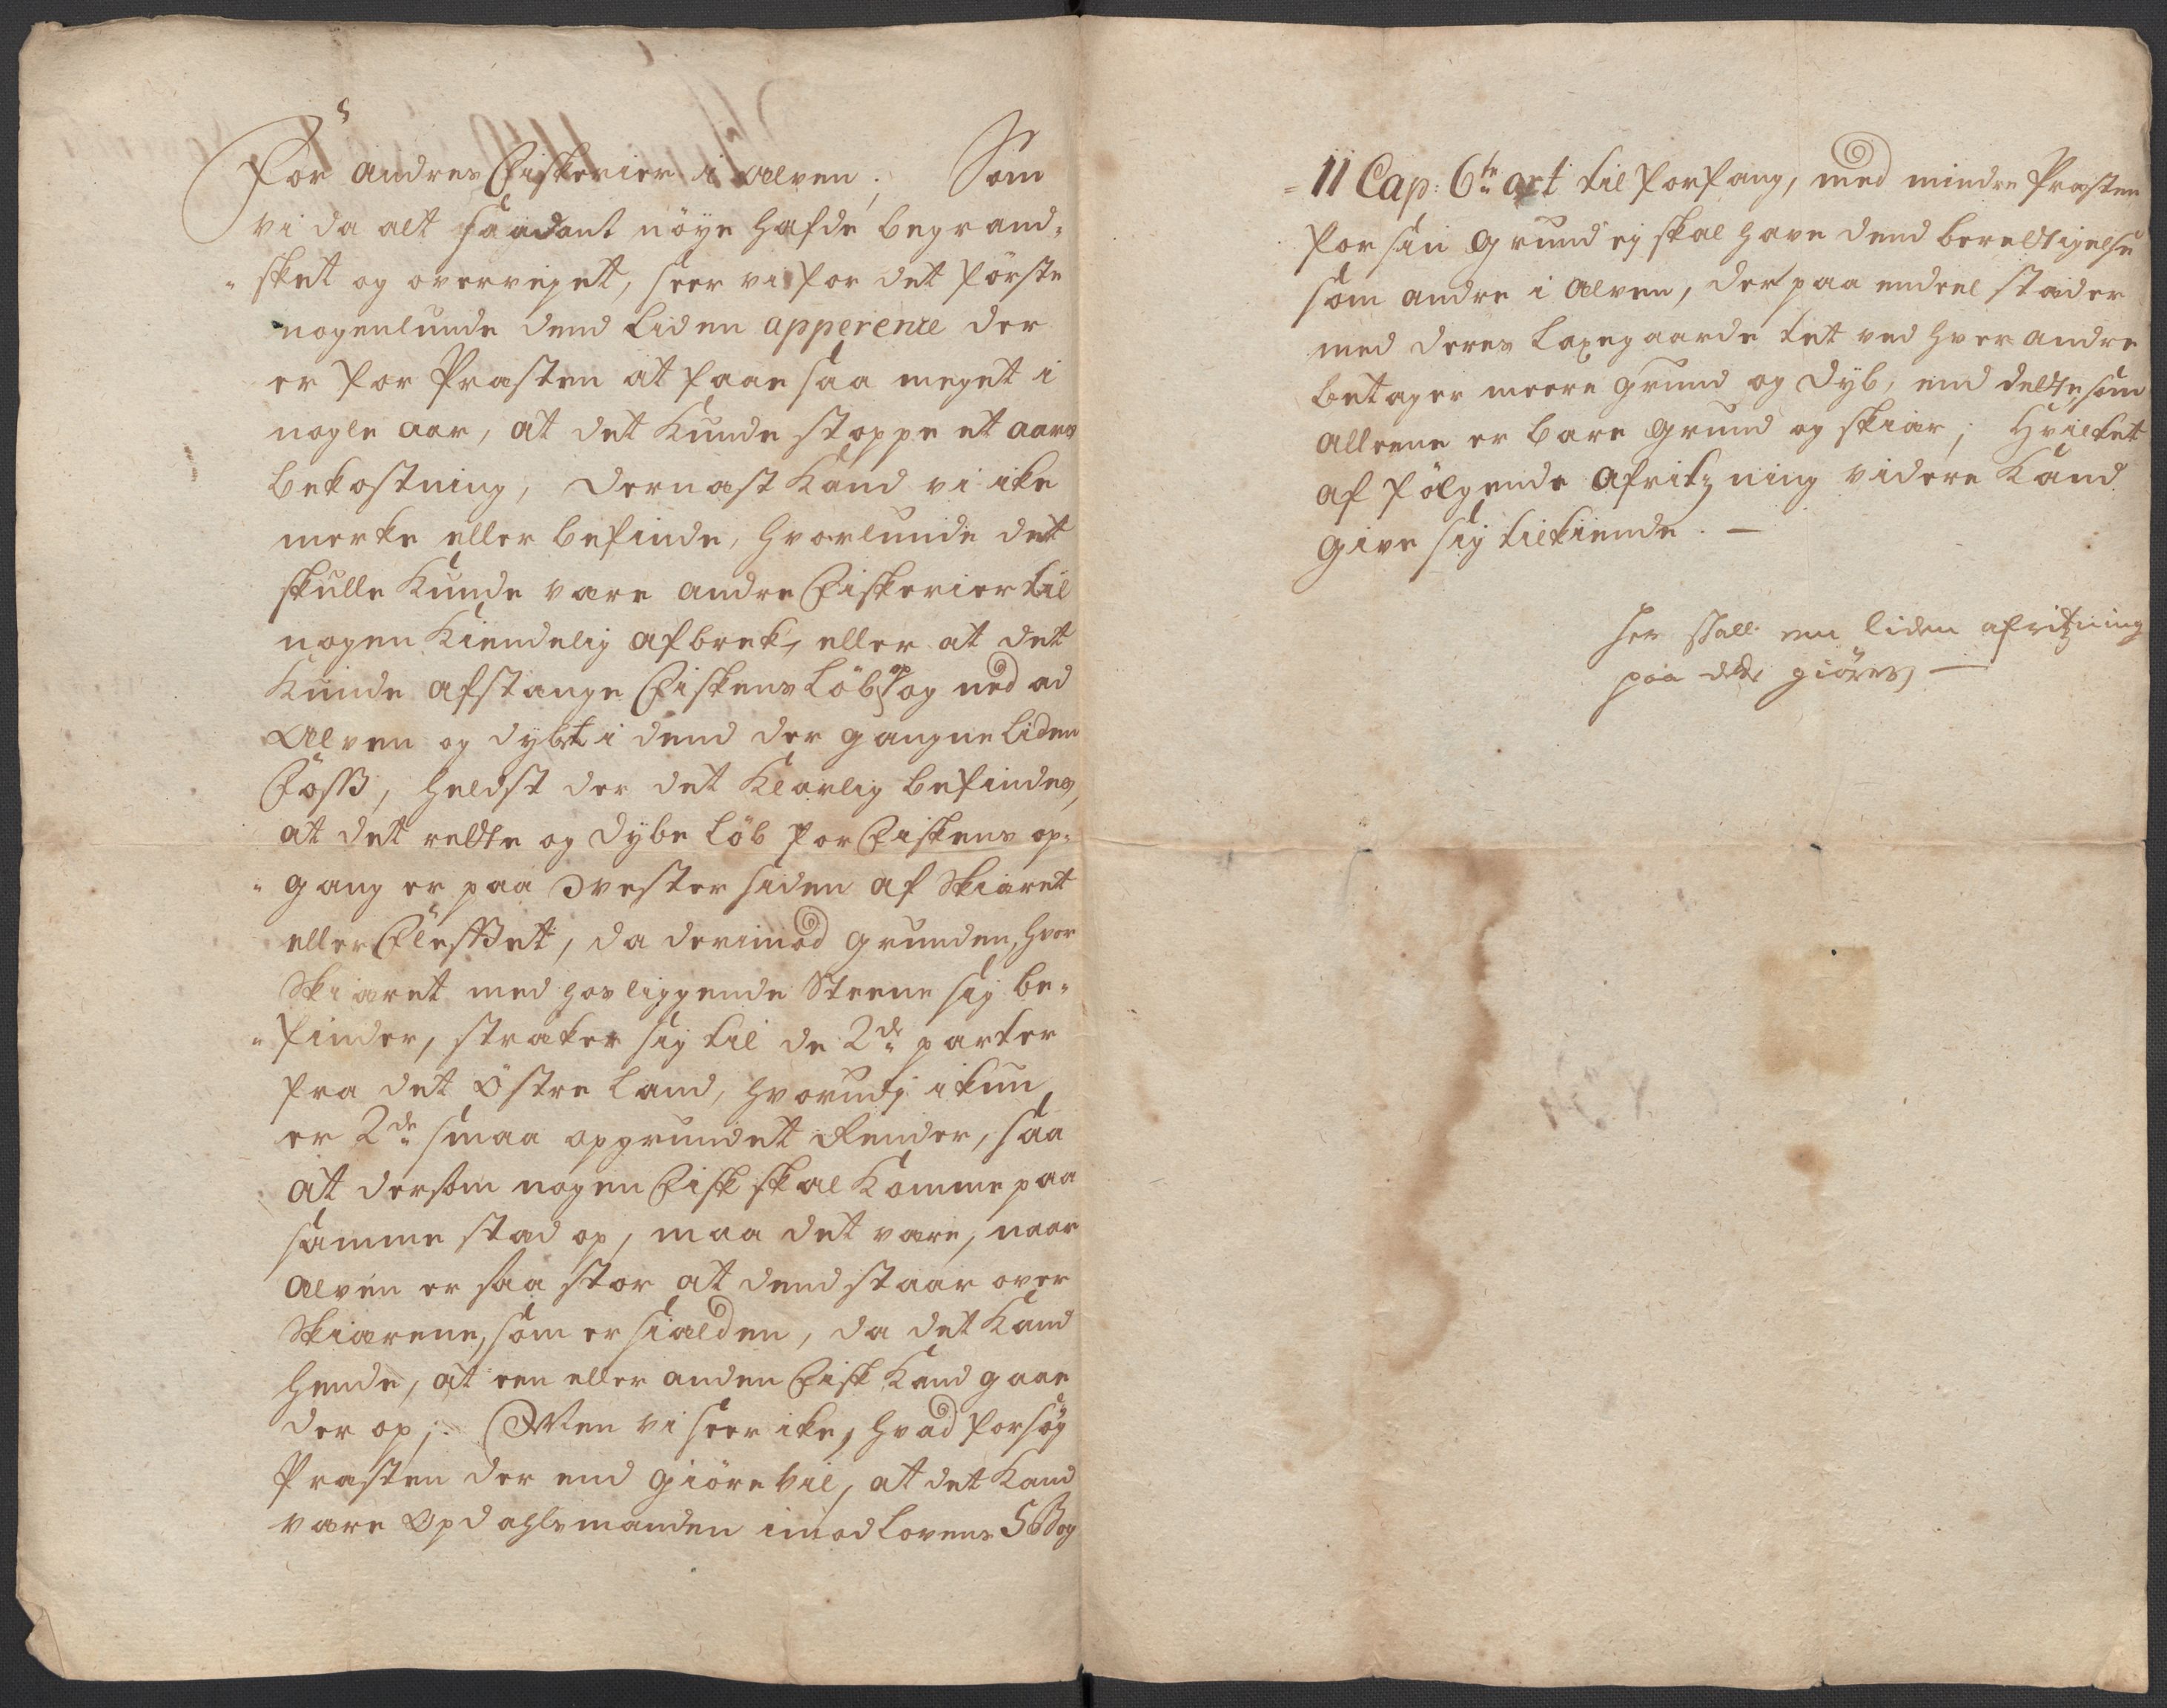 For andres Fiskerier i Elven; Som
vi da alt saadant nöye hafde begrand-
sket og overveyet, seer vi for det förste
nogenlunde dend liden apperence der
er for Præsten at faae saa meget i
nogle aar, at det kunde stoppe et aars
bekostning, dernæst kand vi ike
merke eller befinde, hvorlunde det
skulle kunde være andre Fiskerier til
nogen kiendelig afbrek, eller at det
kunde afstange Fiskens löb op og ned ad
Elven og dybet i dend der gangne liden
Foss, heldst der det klarlig befindes,
at det rette og dybe löb for Fiskens op-
gang er paa Wester siden af Skiæret
eller Flesset, da derimod grunden, hvor
Skiæret med hos liggende Steene sig be-
finder, stræker sig til de 2de parter
fra det östre land, hvorudj ikun
er 2de smaa opgrundet Render, saa
at dersom nogen Fisk skal komme paa
samme stad op, maa det være, naar
Elven er saa stor at dend staar over
Skiærene, som er sielden, da det kand
hende, at een eller anden Fisk kand gaae
der op; Men vi seer ike, hvad forsög
Præsten der end giöre vil, at det kand
være Opdahlsmanden imod lovens 5 Bog
11 Cap: 6te art til forfang, med mindre Præsten
for sin grund ej skal have dend berettigelse
som andre i Elven, der paa endeel stæder
med deres laxegaarde tet ved hver andre
betager meere grund og dyb, end dette, som
alleene er bare grund og skiær; Hvilket
af fölgende afritzning videre kand
give sig tilkiende. —
her skall een liden afritzning
paa dette giöres —